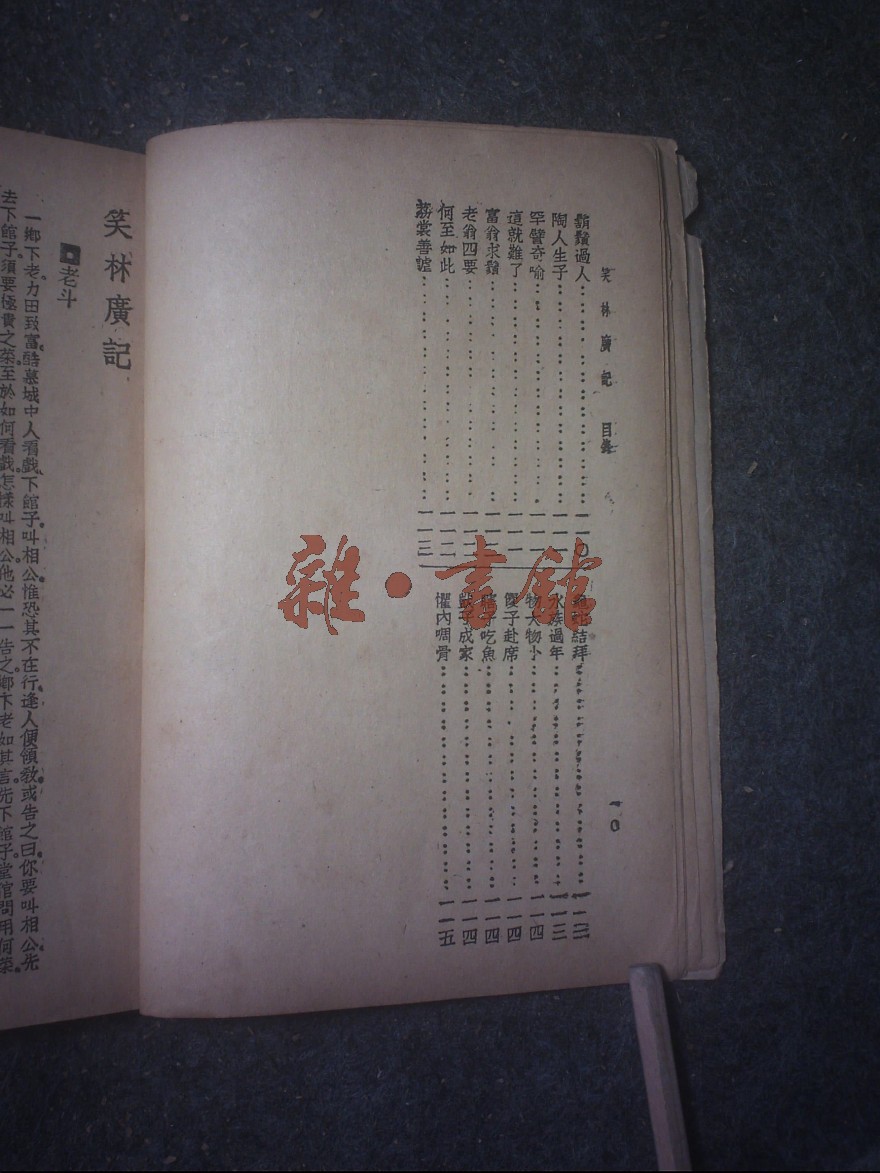 笑林廣記 目錄 一〇
鬍鬚過人 一一〇
陶人生子 一一一
罕譬奇喻 一一一
這就難了 一一一
富翁求鬚 一一二
老翁四要 一一二
何至如此 一一二
荔裳善謔 一一三
結拜 一一三
水族過年 一一三
物大物小 一一四
傻子赴席 一一四
子吃魚 一一四
子成家 一一四
懼內啃骨 一一五
雜·書館
笑林廣記
老斗
一鄉下老力田致富酷慕城中人看戲下館子叫相公惟恐其不在行逢人便領教或告之曰你要叫相公先
去下館子須要極貴之菜至於如何看戲怎樣叫相公他必一一告之鄉下老如其言先下館子堂館問用何菜